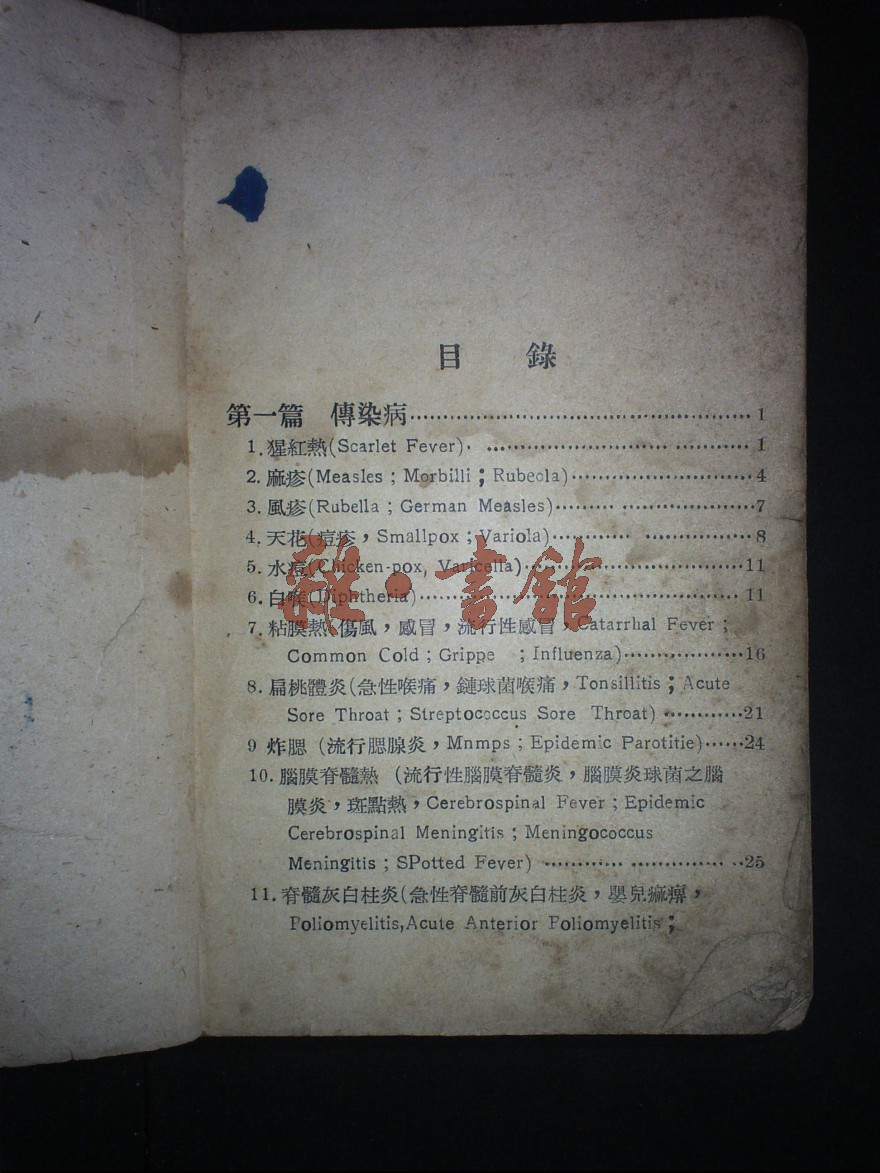 目 錄
第一篇 傳染病 1
1. 猩紅熱(Scarlet Fever) 1
2. 麻疹(Measles ; Morbilli ; Rubeola) 4
3. 風疹(Rubella ; German Measles) 7
4. 天花(痘疹，Smallpox ; Variola) 8
5. 水痘(Chicken-pox, Varicella) 11
6. 白喉(Diphtheria) 11
7. 粘膜熱(傷風，感冒，流行性感冒，Catarrhal Fever ;
Common Cold ; Grippe ; Influenza) 16
8. 扁桃體炎(急性喉痛，鏈球菌喉痛，Tonsillitis ; Acute
Sore Throat ; Streptococcus Sore Throat) 21
9 炸腮 (流行腮腺炎，Mnmps ; Epidemic Parotitie) 24
10. 腦膜脊髓熱 (流行性腦膜脊髓炎，腦膜炎球菌之腦
膜炎，斑點熱，Cerebrospinal Fever ; Epidemic
Cerebrospinal Meningitis ; Meningococcus
Meningitis ; SPotted Fever) 25
11. 脊髓灰白柱炎(急性脊髓前灰白柱炎，嬰兒痲痹，
Poliomyelitis,Acute Anterior Poliomyelitis ;
雜·書館